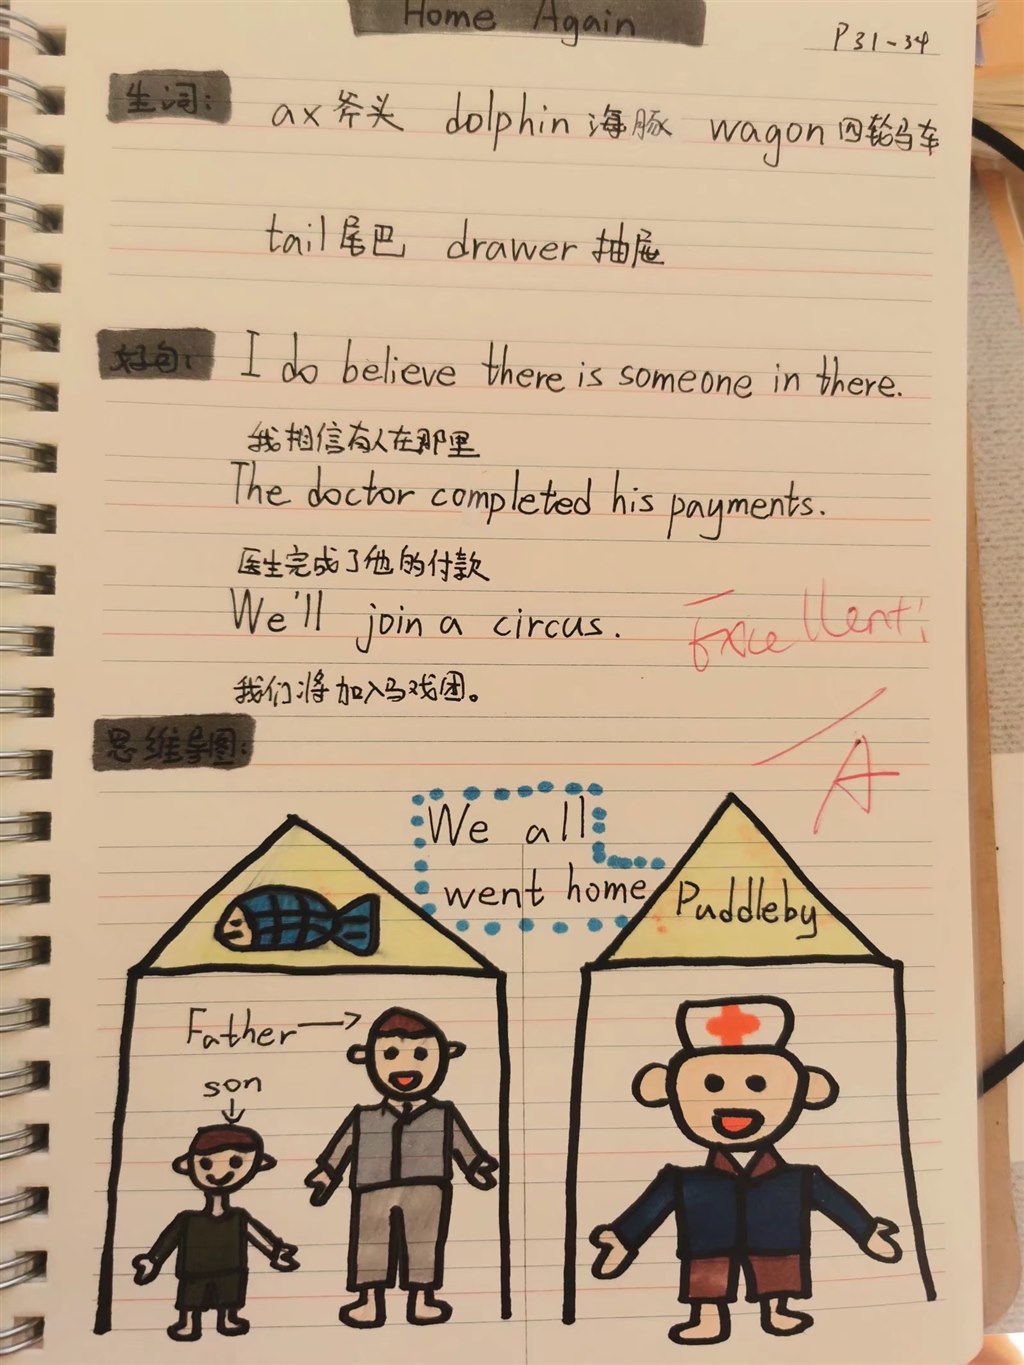 Home Again
P31-34
生词:
ax 斧头 dolphin 海豚 wagon 四轮马车
tail 尾巴 drawer 抽屉
好句:
I do believe there is someone in there.
我相信有人在那里
The doctor completed his payments.
医生完成了他的付款
We'll join a circus.
我们将加入马戏团。
Excellent!
A
思维导图:
We all
went home
Puddleby
Father
son